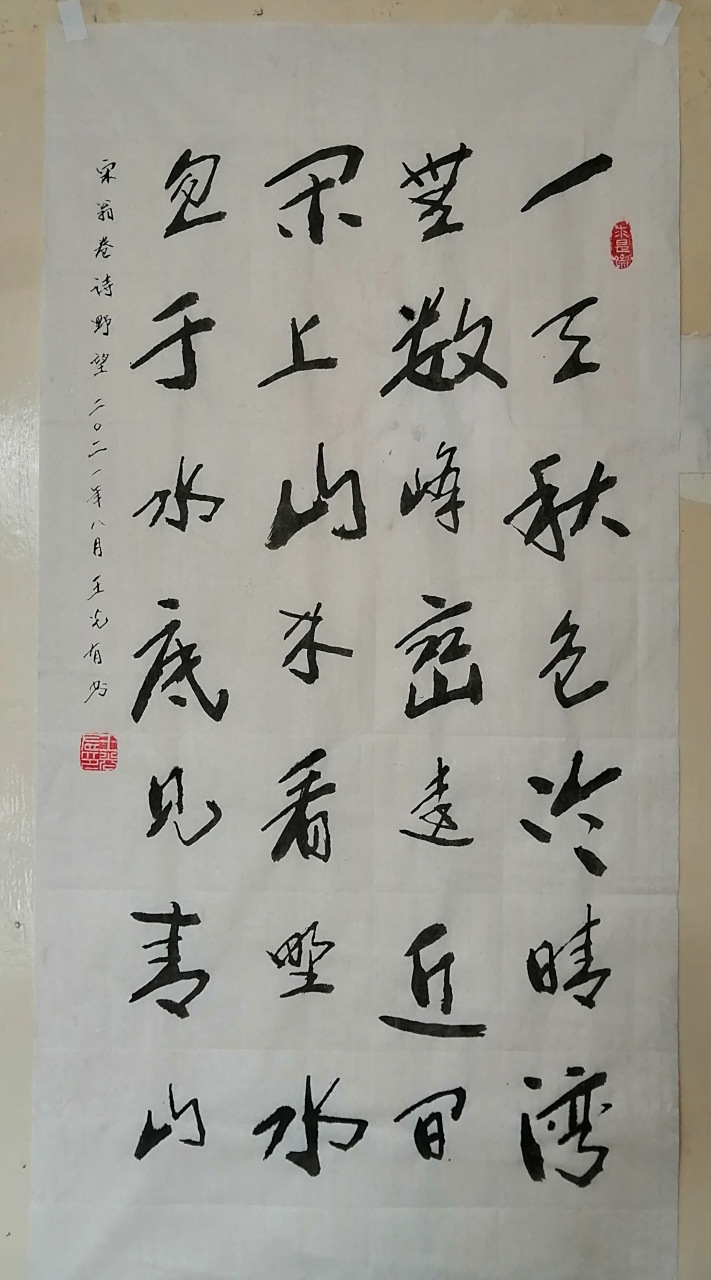 一天秋色冷晴湾
無数峰峦遠近间
闲上山来看野水
忽于水底見青山
宋翁卷诗野望二〇二一年八月王光有书